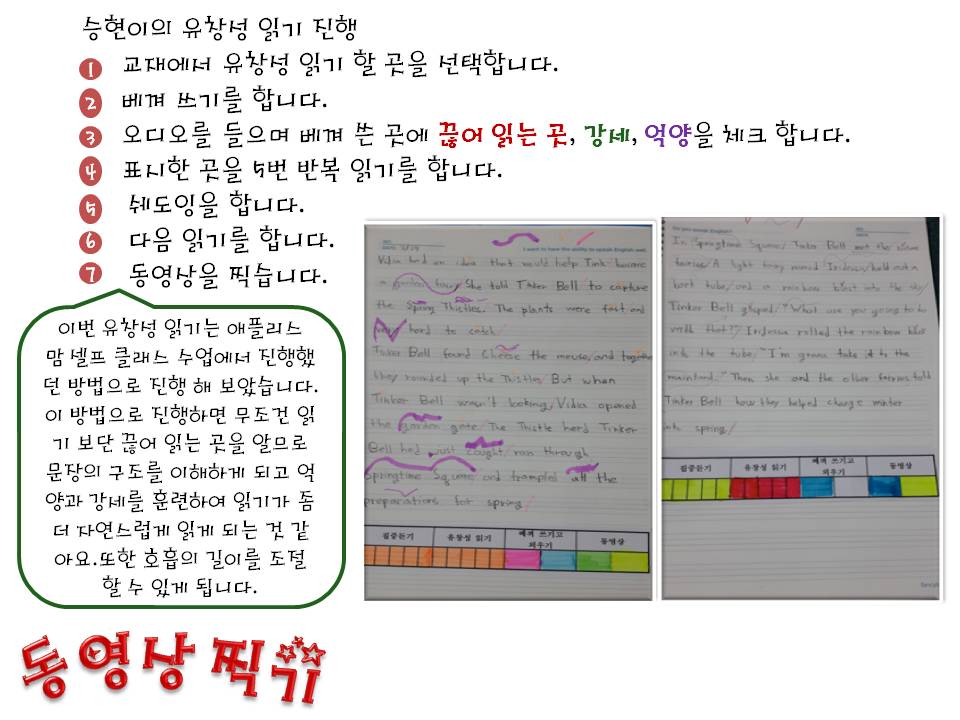 승현이의 유창성 읽기 진행
1 교재에서 유창성 읽기 할 곳을 선택합니다.
2 베껴 쓰기를 합니다.
3 오디오를 들으며 베껴 쓴 곳에 끊어 읽는 곳, 강세, 억양을 체크 합니다.
4 표시한 곳을 5번 반복 읽기를 합니다.
5 쉐도잉을 합니다.
6 다음 읽기를 합니다.
7 동영상을 찍습니다.
이번 유창성 읽기는 애플리스
맘 셀프 클래스 수업에서 진행했
던 방법으로 진행 해 보았습니다.
이 방법으로 진행하면 무조건 읽
기 보단 끊어 읽는 곳을 알므로
문장의 구조를 이해하게 되고 억
양과 강세를 훈련하여 읽기가 좀
더 자연스럽게 읽게 되는 것 같
아요.또한 호흡의 길이를 조절
할 수 있게 됩니다.
동영상 찍기
I want to have the ability to speak English well.
Vidia had an idea that would help Tink become
a garden fairy. She told Tinker Bell to capture
the Spring Thistles. The plants were fast and
very hard to catch.
Tinker Bell found Cheese the mouse, and together
they rounded up the Thistles. But when
Tinker Bell wasn't looking, Vidia opened
the garden gate. The Thistle herd Tinker
Bell had just caught ran through
Springtime Square and trampled all the
preparations for spring.
집중듣기 유창성 읽기 베껴 쓰기고 외우기 동영상
Do you speak English?
In Springtime Square, Tinker Bell met the
fairies. A light fairy named Iridessa held out a
bent tube, and a rainbow burst into the sky.
Tinker Bell gasped. "What are you going to do
with that?" Iridessa rolled the rainbow
into the tube. "I'm gonna take it to the
mainland." Then she and the other fairies told
Tinker Bell how they helped change winter
into spring.
집중듣기 유창성 읽기 베껴 쓰기고 외우기 동영상